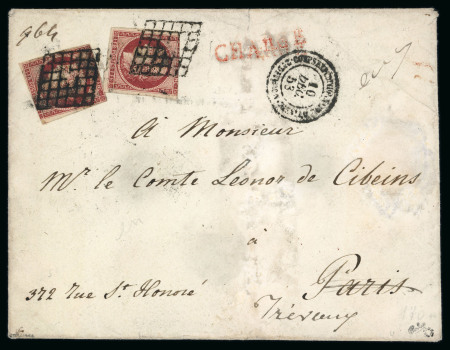 964
CHARGÉ
10
DEC.
53
A Monsieur
Mr. le Comte Leonor de Cibeins
à
372 Rue St. Honoré
Paris
Trévoux